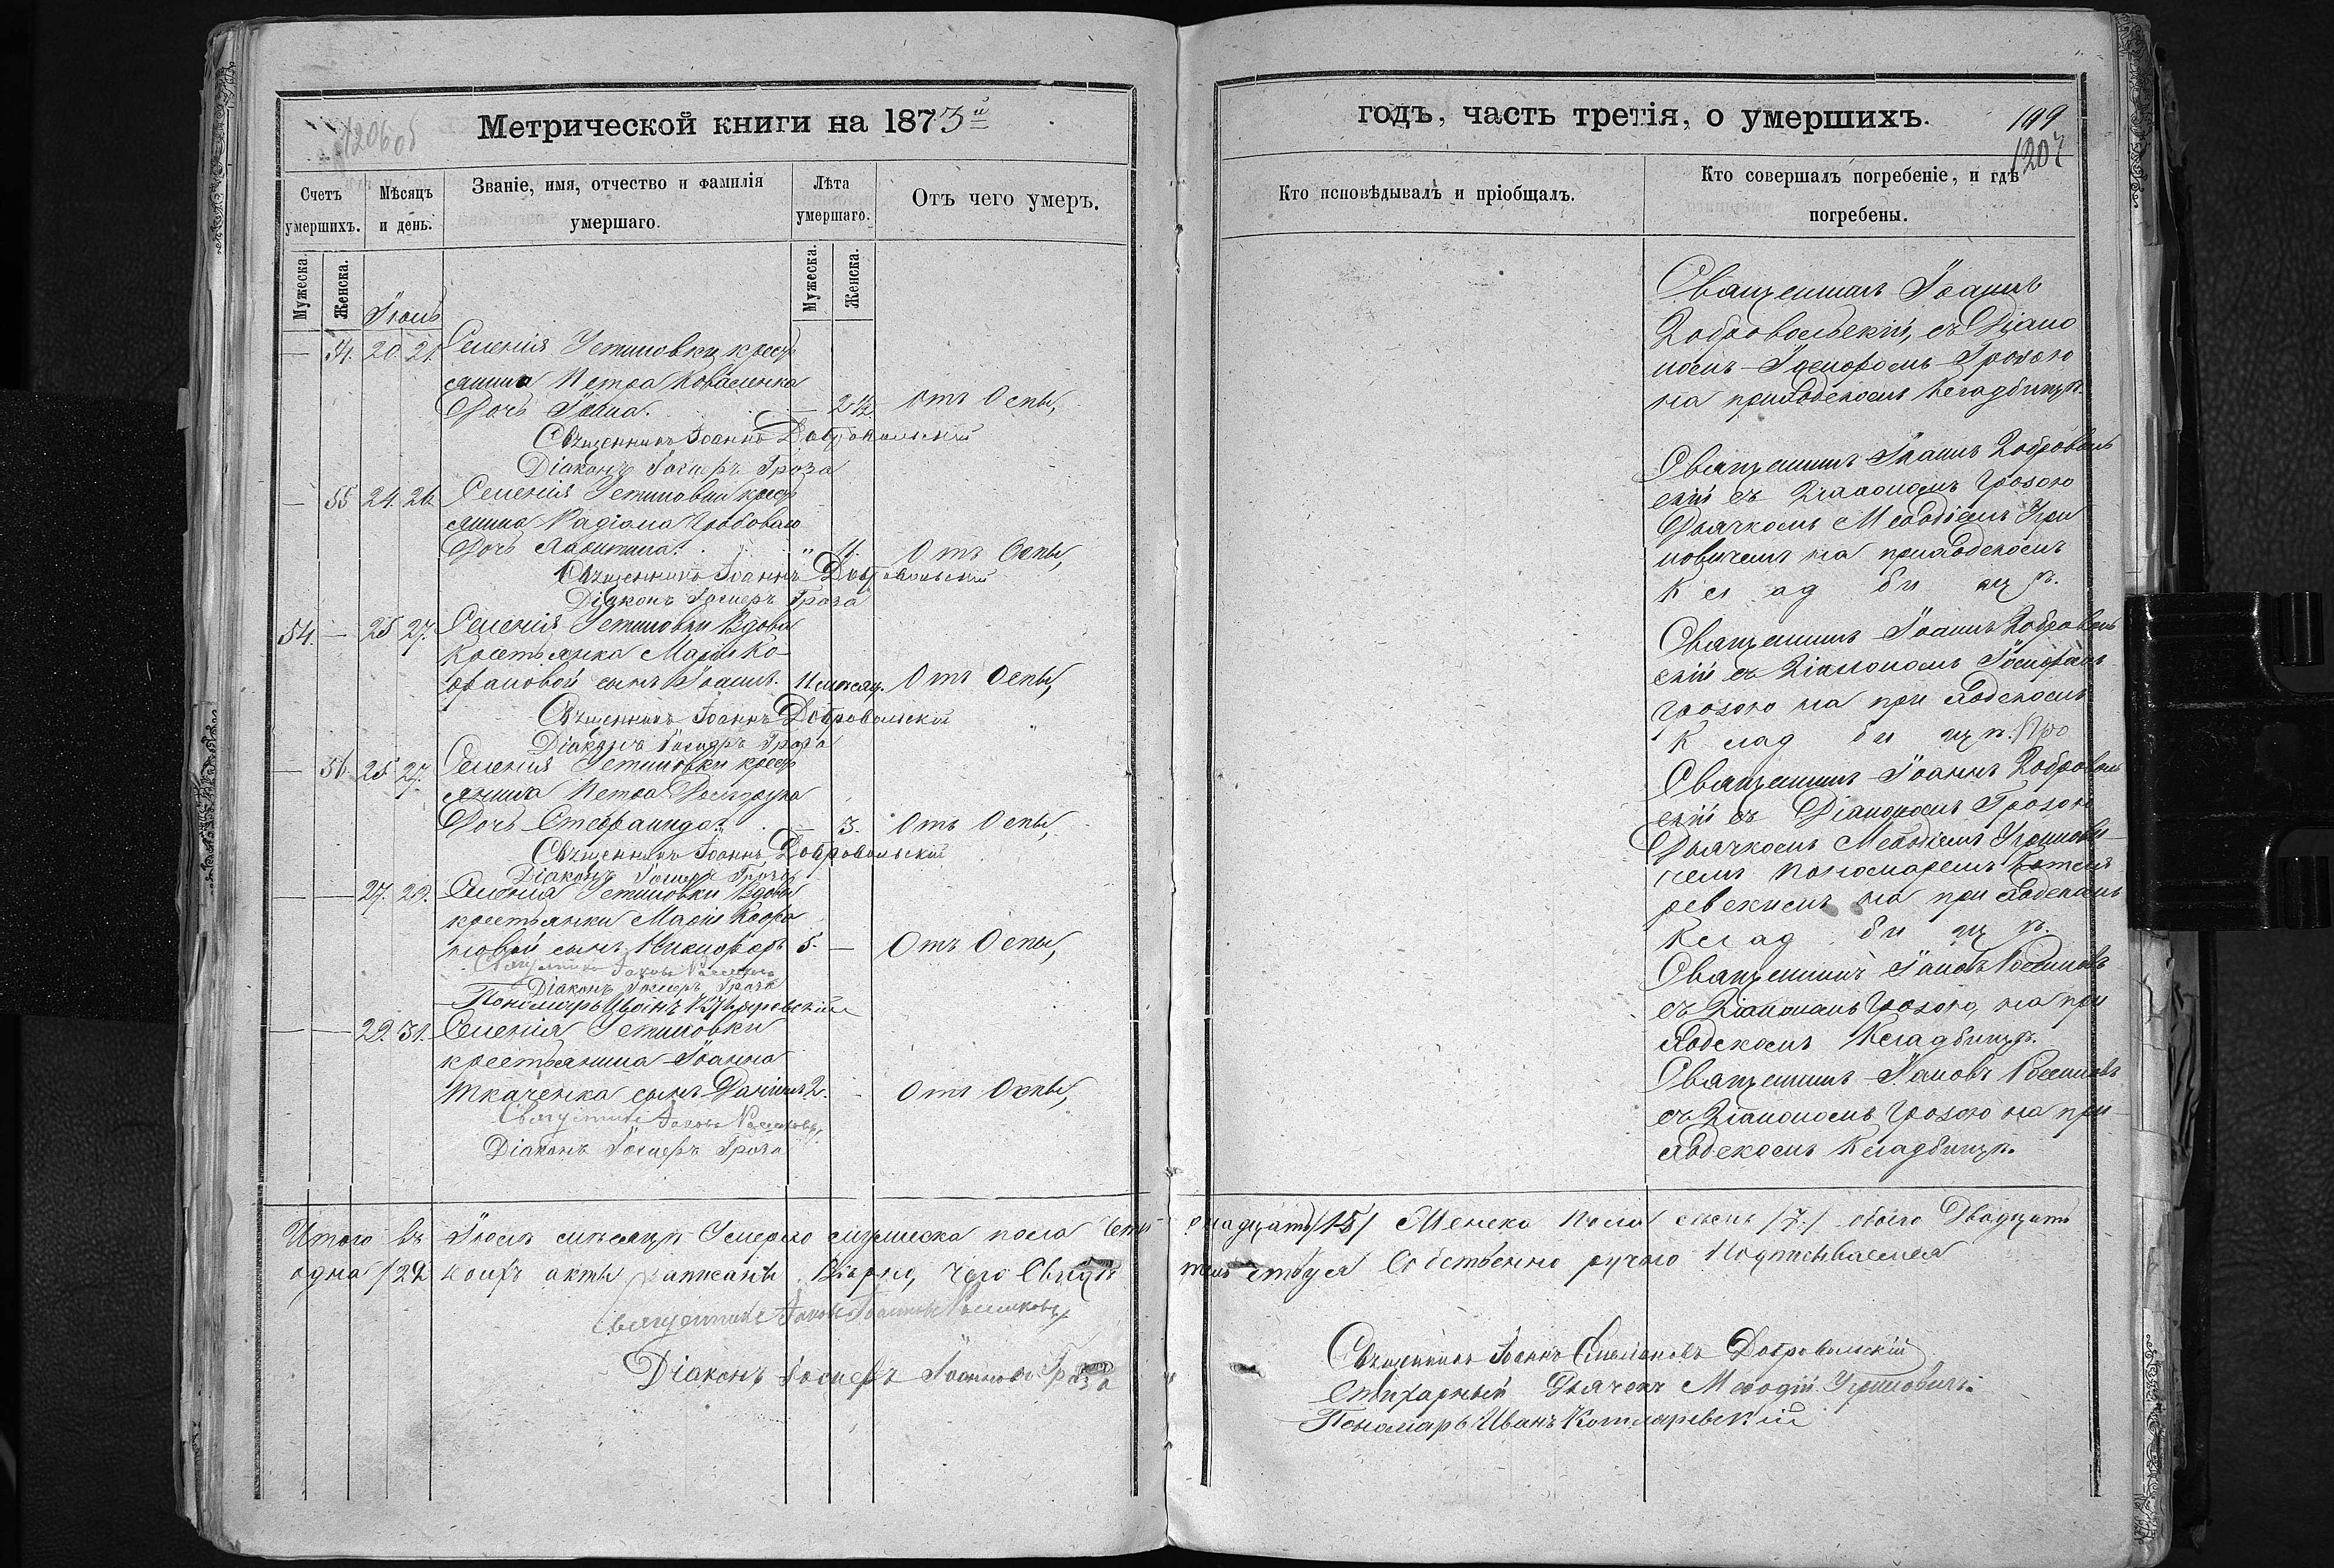 Метрической книги на 1873й
Счетъ умершихъ.
Мѣсяцъ и день.
Званіе, имя, отчество и фамилія умершаго.
Лѣта умершаго.
Отъ чего умеръ.
Мужеска.
Женска.
Мужеска.
Женска.
Іюль
— 54. 20. 21. Селенія Устиновки крест
янина Петра Коваленка
Дочь — 2½ Отъ Оспы,
Священникъ Іоаннъ Добровольскій
Діаконъ Іосифъ Гроза
— 55 24. 26. Селенія Устиновки крест
янина
Дочь " 4. Отъ Оспы,
Священникъ Іоаннъ Добровольскій
Діаконъ Іосифъ Гроза
54. — 25 27. Селенія Устиновки Вдовы
Крестьянка Маріи Ко-
сынъ Іоаннъ. 11 мѣсяц. Отъ Оспы,
Священникъ Іоаннъ Добровольскій
Діаконъ Іосифъ Гроза
— 56. 25 27. Селенія Устиновки крест
янина Петра
Дочь Стефанида. — 3. Отъ Оспы,
Священникъ Іоаннъ Добровольскій
Діаконъ Іосифъ Гроза
— — 27. 29. Селенія Устиновки Вдовы
крестьянки Маріи
сынъ Никифоръ 5. — Отъ Оспы,
Священникъ Іаковъ
Діаконъ Іосифъ Гроза
Пономарь Иванъ
— — 29. 31. Селенія Устиновки
крестьянина Іоанна
Ткаченка сынъ Даніилъ 2. Отъ Оспы,
Священникъ Іаковъ
Діаконъ Іосифъ Гроза
Итого въ Іюлѣ мѣсяцѣ Умерло мужеска пола четы
одна /22 коихъ акты записаны Вѣрно, чего Свидѣ
Священникъ Іаковъ
Діаконъ Іосифъ Іоанновъ Гроза
годъ, часть третія, о умершихъ.
199
1207
Кто исповѣдывалъ и пріобщалъ.
Кто совершалъ погребеніе, и гдѣ погребены.
Священникъ Іоаннъ
Добровольскій, съ Діако
номъ Іосифомъ Грозою
на приходскомъ Кладбищѣ.
Священникъ Іоаннъ Добровол
скій съ Діакономъ Грозою
Дьячкомъ Меѳодіемъ Угри
новичемъ на приходскомъ
Кладбищѣ.
Священникъ Іоаннъ Добровол
скій съ Діакономъ Іосифомъ
Грозою на приходскомъ
Кладбищѣ.
Священникъ Іоаннъ Добровол
скій съ Діакономъ Грозою
Дьячкомъ Меѳодіемъ Угринови
чемъ Пономаремъ Котля
ревскимъ на приходскомъ
Кладбищѣ.
Священникъ Іаковъ
съ Діакономъ Грозою, на при
ходскомъ Кладбищѣ.
Священникъ Іаковъ
съ Діакономъ Грозою на при
ходскомъ Кладбищѣ.
надцать /15/ Женска пола семь /7/ обоего Двадцать
тельствуя Собственно ручно Подписываемся
Священникъ Іоаннъ Добровольскій
Стихарный Дьячекъ Меѳодій Угриновичъ.
Пономарь Иванъ Котляревскій